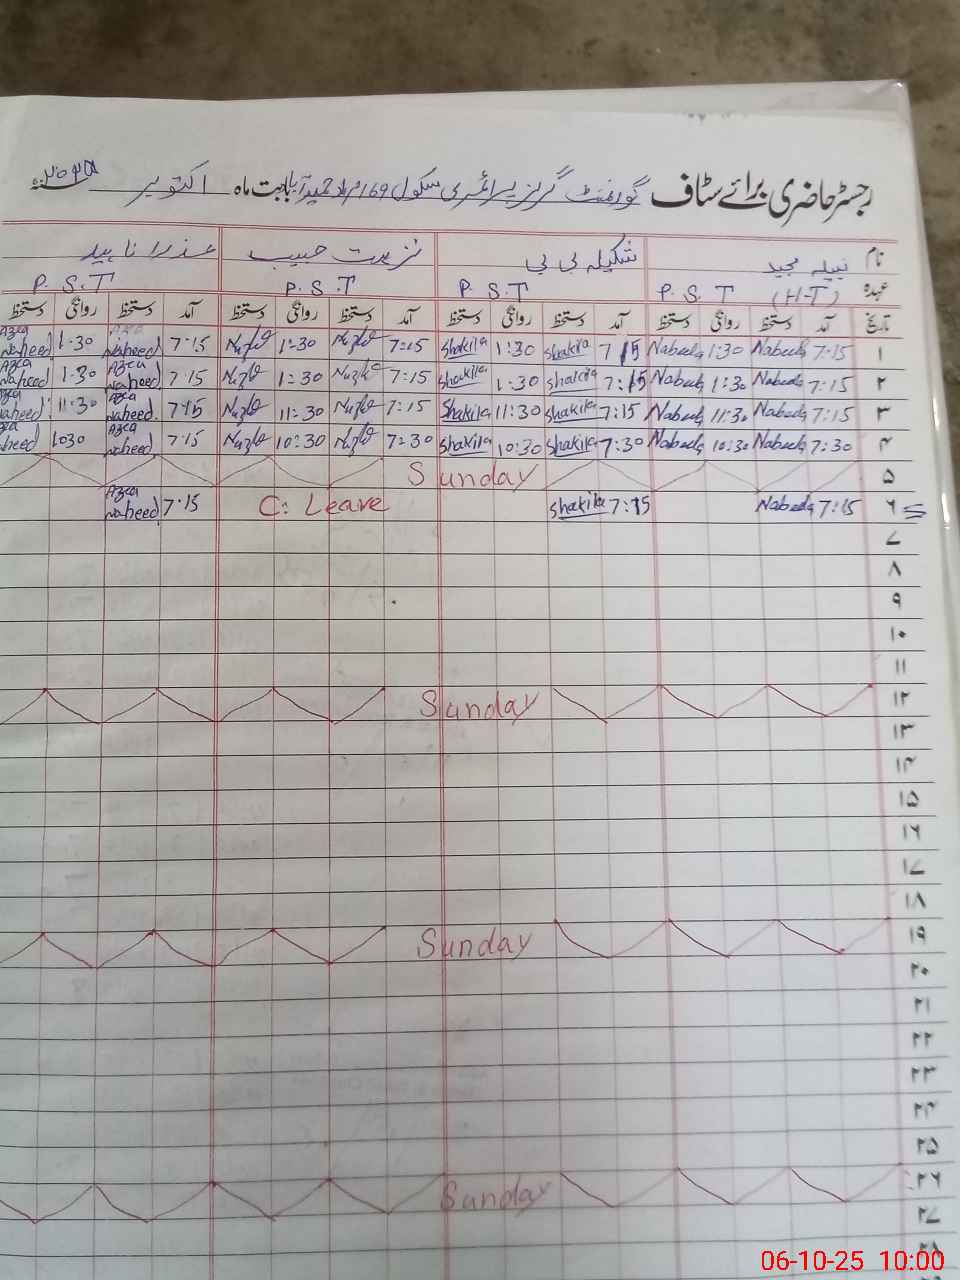 رجسٹر حاضری برائے سٹاف گورنمنٹ گرلز پرائمری سکول 169 مراد حمید آباد بابت ماہ اکتوبر سنہ ۲۰۲۵
نام نبیلہ مجید شکیلہ بی بی نزہت حبیب عذرا ناہید
عہدہ P.S.T (H-T) P.S.T P.S.T P.S.T
تاریخ آمد دستخط روانگی دستخط آمد دستخط روانگی دستخط آمد دستخط روانگی دستخط آمد دستخط روانگی دستخط
۱ 7:15 Nabeela 1:30 Nabeela 7:15 Shakila 1:30 Shakila 7:15 Nuzht 1:30 Nuzht 7:15 Azra Naheed 1:30 Azra Naheed
۲ 7:15 Nabeela 1:30 Nabeela 7:15 Shakila 1:30 Shakila 7:15 Nuzht 1:30 Nuzht 7:15 Azra Naheed 1:30 Azra Naheed
۳ 7:15 Nabeela 11:30 Nabeela 7:15 Shakila 11:30 Shakila 7:15 Nuzht 11:30 Nuzht 7:15 Azra Naheed 11:30 Azra Naheed
۴ 7:30 Nabeela 10:30 Nabeela 7:30 Shakila 10:30 Shakila 7:30 Nuzht 10:30 Nuzht 7:15 Azra Naheed 1030 Azra Naheed
۵ Sunday
۶ 7:15 Nabeela 7:15 Shakila C: Leave 7:15 Azra Naheed
۷
۸
۹
۱۰
۱۱
۱۲ Sunday
۱۳
۱۴
۱۵
۱۶
۱۷
۱۸
۱۹ Sunday
۲۰
۲۱
۲۲
۲۳
۲۴
۲۵
۲۶ Sunday
۲۷
۲۸
06-10-25 10:00